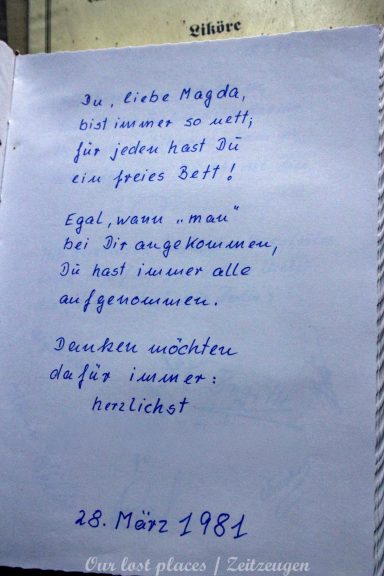 Liköre
Du, liebe Magda,
bist immer so nett;
für jeden hast Dü
ein freies Bett!
Egal, wann „man"
bei Dir angekommen,
Dü hast immer alle
aufgenommen.
Danken möchten
dafür immer:
herzlichst
28. März 1981
Our lost places | Zeitzeugen